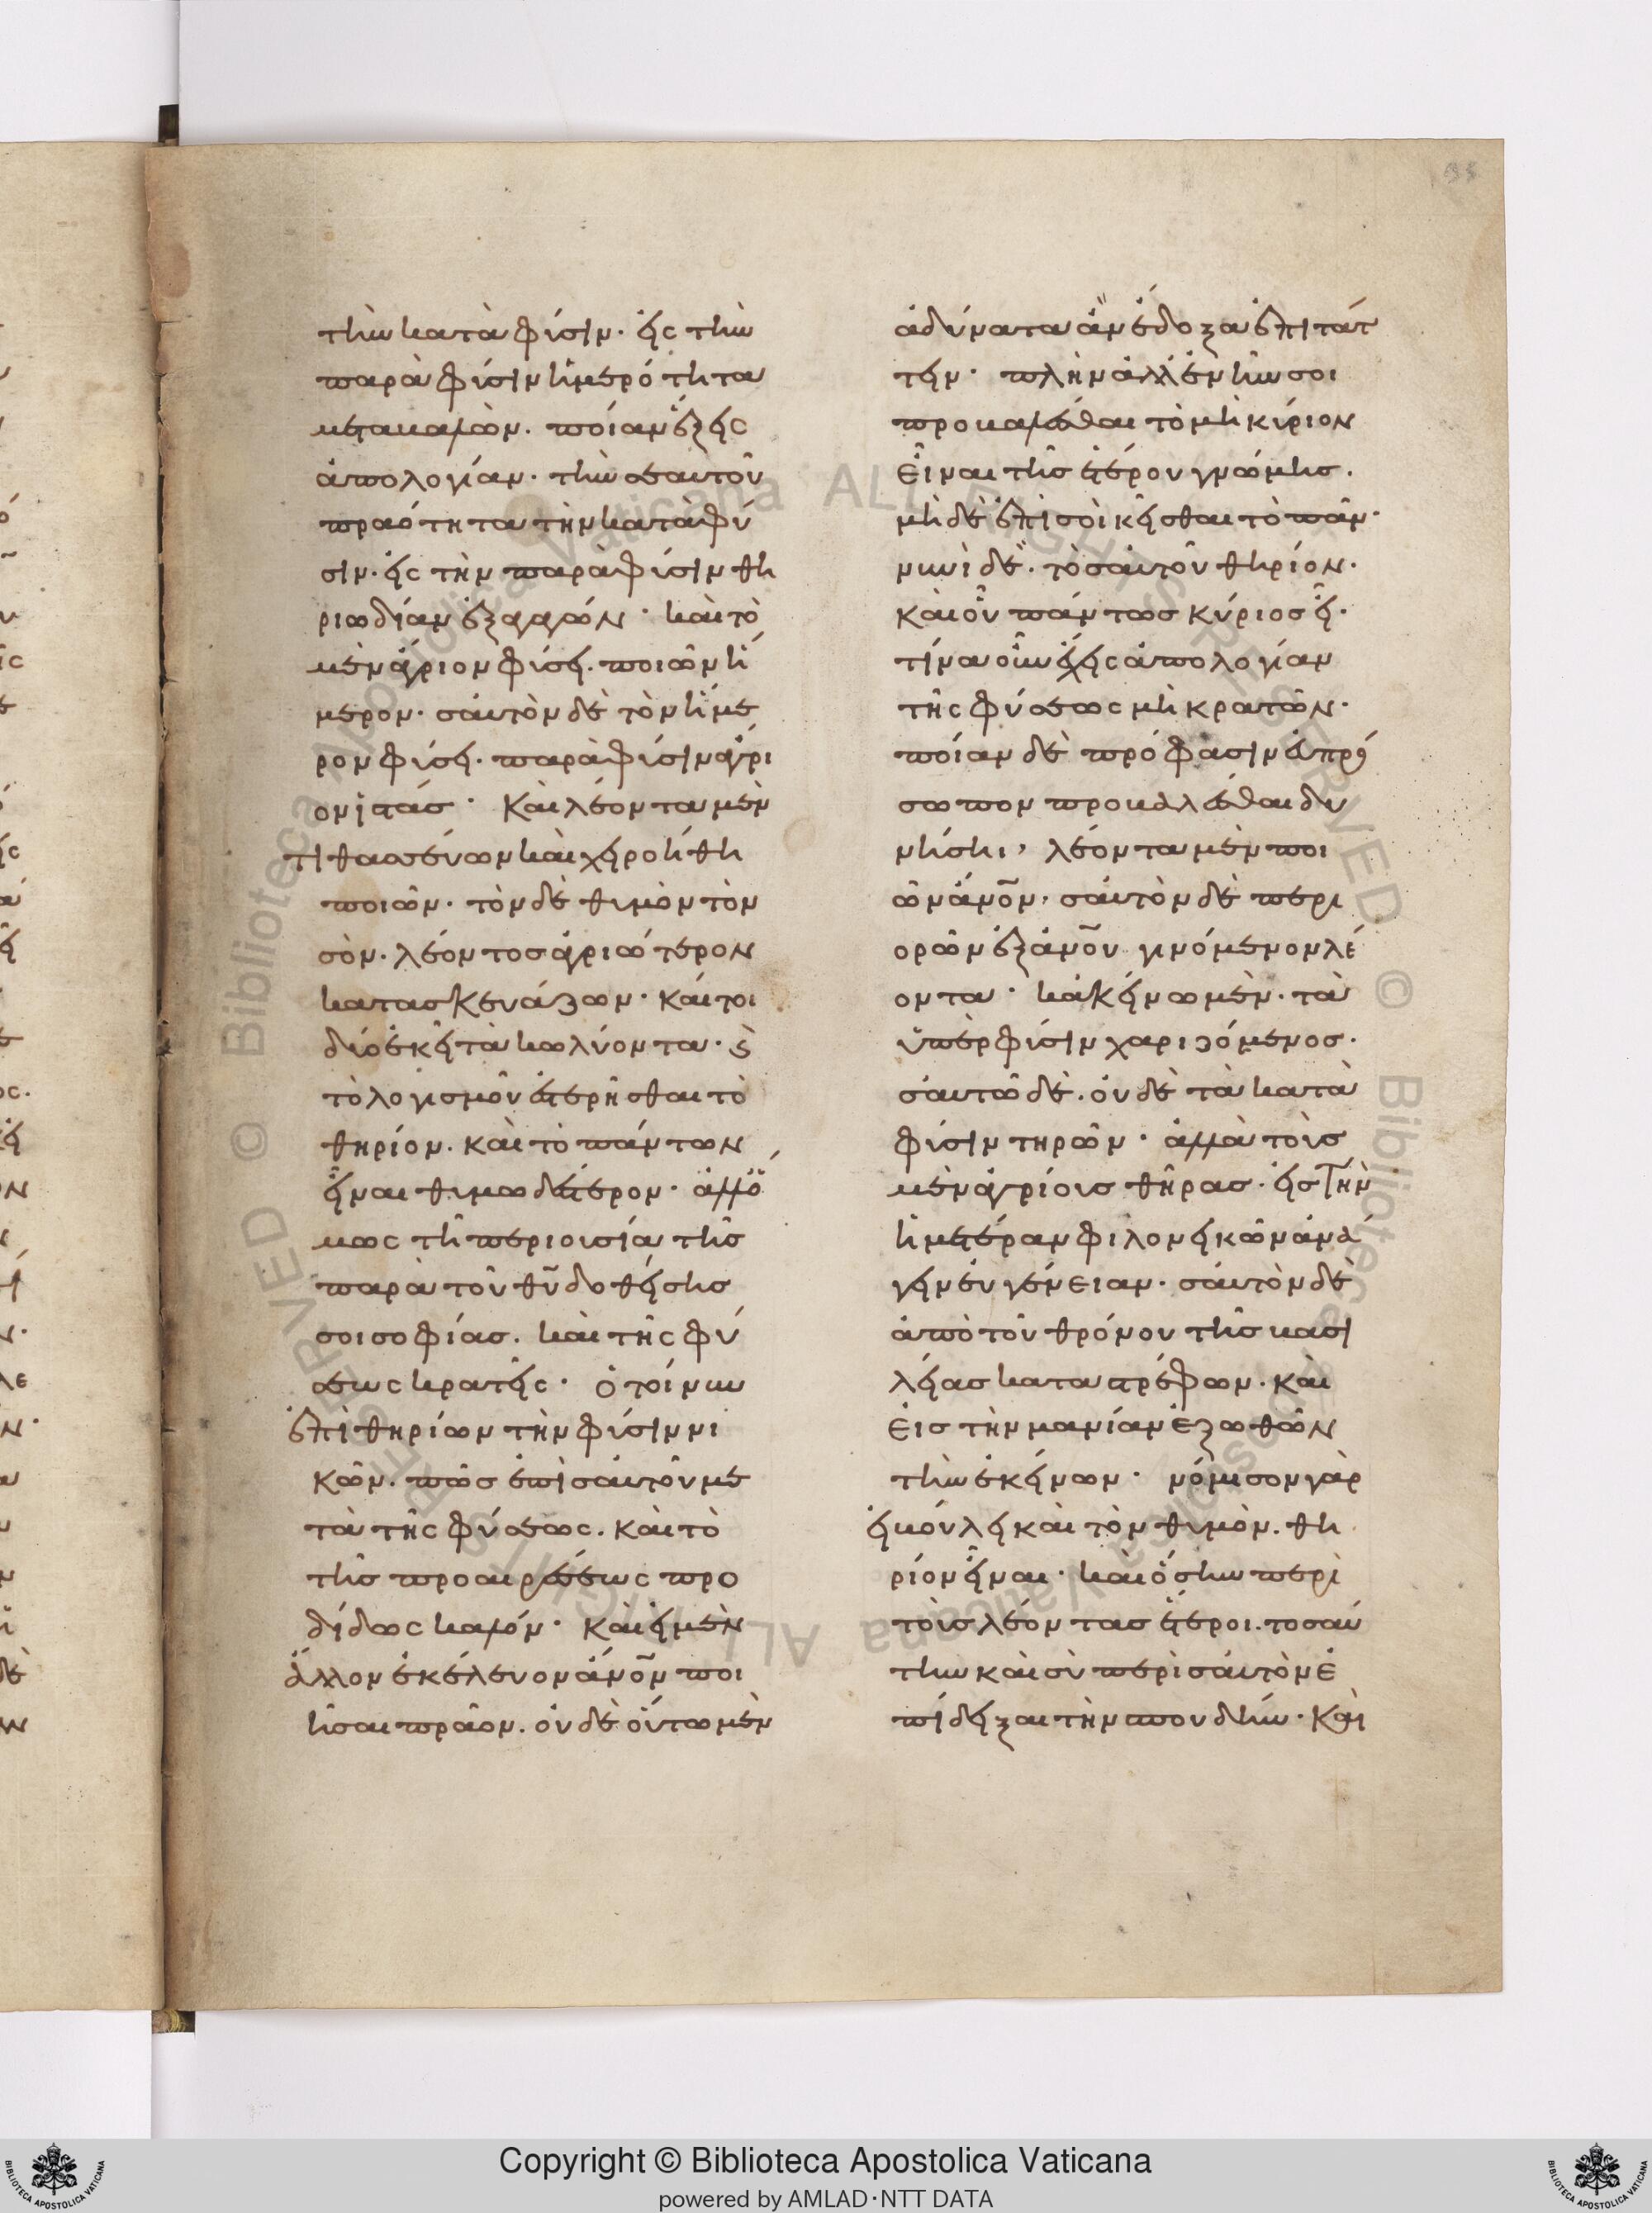 τὴν κατὰ φύσιν· εἰς τὴν
παρὰ φύσιν ἡμερότητα
μεταβαλὼν. ποίαν ἕξεις
ἀπολογίαν· τὴν σεαυτοῦ
πραότητα τὴν κατὰ φύ
σιν· εἰς τὴν παρὰ φύσιν θη
ριωδίαν ἐξαγαγών· καὶ τὸ
μὲν ἄγριον φύσει. ποιῶν ἥ
μερον· σαυτὸν δὲ τὸν ἥμε
ρον φύσει. παρὰ φύσιν ἄγρι
ον ἱστάς· Καὶ λέοντα μὲν
τιθασεύων καὶ χειροήθη
ποιῶν. τὸν δὲ θυμὸν τὸν
σὸν. λέοντος ἀγριώτερον
κατασκευάζων· καίτοι
δύο ἐκεῖ τὰ κωλύοντα· ϛ
τὸ λογισμοῦ ἐστερῆσθαι τὸ
θηρίον. καὶ τὸ πάντων
εἶναι θυμωδέστερον· ἀλλ' ὅ
μως τῆ περιουσία τῆς
παρὰ τοῦ θῦ δοθείσης
σοι σοφίας. καὶ τῆς φύ
σεως κρατεῖς· ὁ τοίνυν
ἐπὶ θηρίων τὴν φύσιν νι
κῶν. πῶς ἐπὶ σαυτοῦ με
τὰ τῆς φύσεως. καὶ τὸ
τῆς προαιρέσεως προ
δίδως καλόν· Καὶ εἰ μὲν
ἄλλον ἐκέλευον ἄνον ποι
ῆσαι πρᾶον. οὐδὲ οὕτω μὲν
ἀδύνατα ἂν ἔδοξα ἐπιτάτ
τειν· πλὴν ἀλλ' ἐνῆν σοι
προβαλέσθαι τὸ μὴ κύριον
εἶναι τῆς ἑτέρου γνώμης.
μὴ δὲ ἐπὶ σοὶ κεῖσθαι τὸ πᾶν·
νυνὶ δὲ. τὸ σαυτοῦ θηρίον.
καὶ οὗ πάντως κύριος εἶ·
τίνα οὖν ἕξεις ἀπολογίαν
τῆς φύσεως μὴ κρατῶν·
ποίαν δὲ πρόφασιν εὐπρό
σωπον προβαλέσθαι δυ
νήση, λέοντα μὲν ποι
ῶν ἄνον, σαυτὸν δὲ περι
ορῶν ἐξ ἀνου γινόμενον λέ
οντα· κἀκείνω μὲν. τὰ
ὑπὲρ φύσιν χαριζόμενος.
σαυτῶ δὲ. οὐδὲ τὰ κατὰ
φύσιν τηρῶν· ἀλλὰ τοὺς
μὲν ἀγρίους θῆρας. εἰς τὴν
ἡμετέραν φιλονεικῶν ἀνά
γειν εὐγένειαν. σαυτὸν δὲ
ἀπὸ τοῦ θρόνου τῆς βασι
λείας καταστρέφων. καὶ
εἰς τὴν μανίαν ἐξωθῶν
τὴν ἐκείνων· νόμισον γὰρ
εἰ βούλει καὶ τὸν θυμὸν. θη
ρίον εἶναι· καὶ ὅσην περὶ
τοὺς λέοντας ἕτεροι. τοσαύ
την καὶ σὺ περὶ σαυτὸν ἐ
πίδειξαι τὴν σπουδήν· Καὶ
Copyright © Biblioteca Apostolica Vaticana
powered by AMLAD·NTT DATA